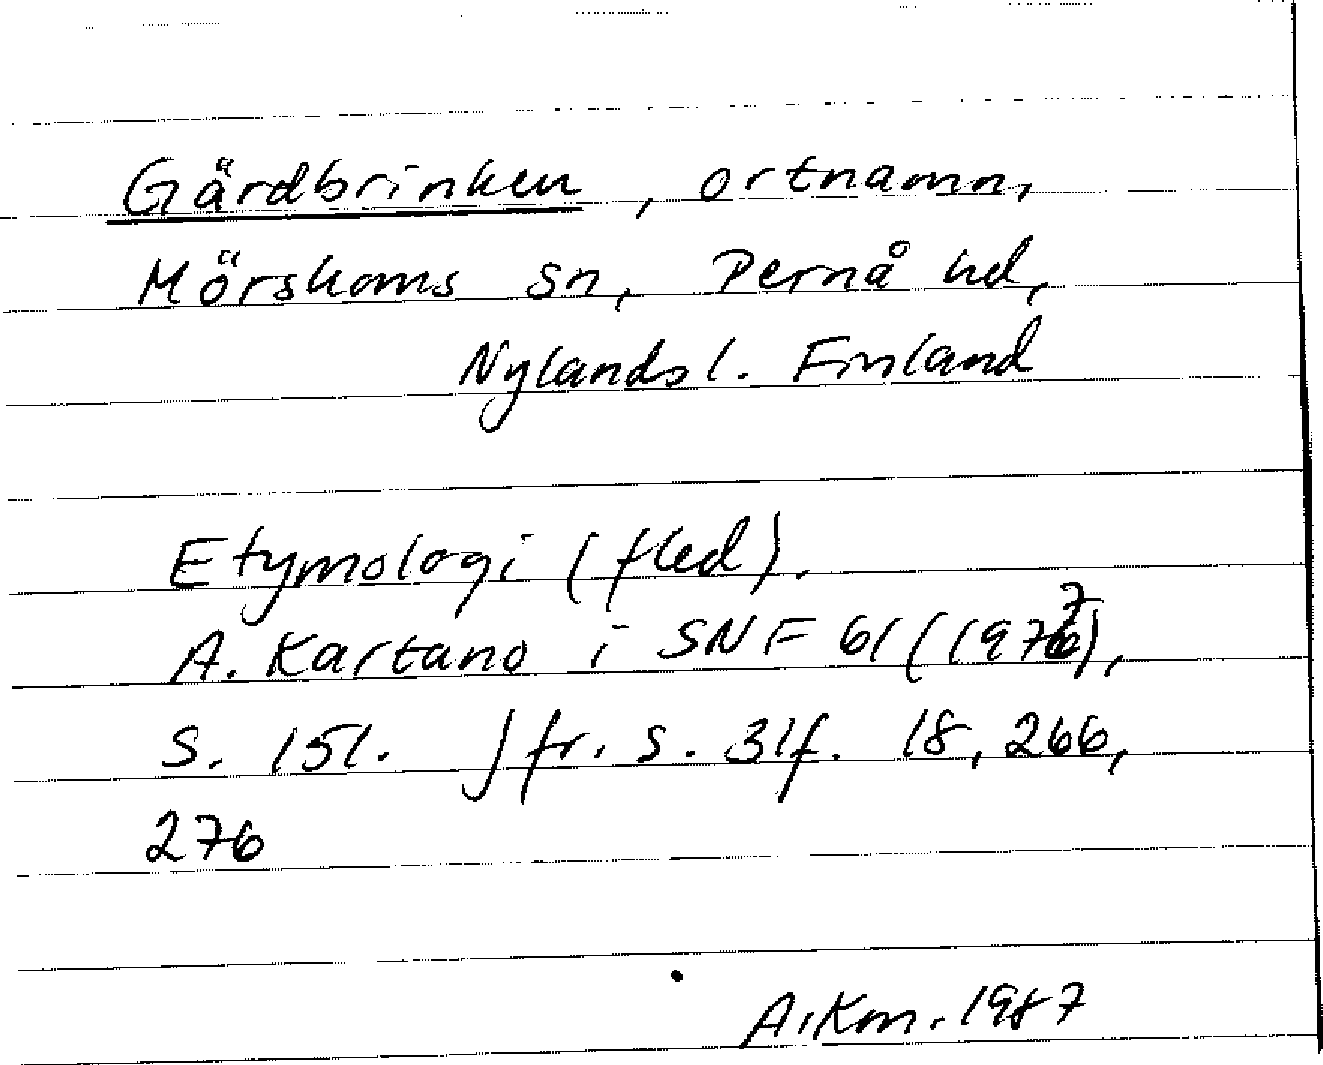 Gärdbrinken, ortnamn,
Mörskoms sn, Pernå hd,
Nylands l. Finland
Etymologi (fled).
A. Kartano i SNF 61 (1977),
S. 151. Jfr. s. 31f. 18, 266,
276
A.Km. 1987